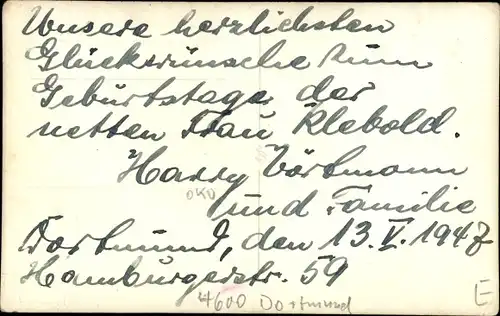 Unsere herzlichsten
Glückwünsche zum
Geburtstage der
netten Frau Klebold.
Harry Vörtmann
OKD
und Familie
Dortmund, den 13.V.1942
Hamburgerstr. 59
4600 Dortmund
E